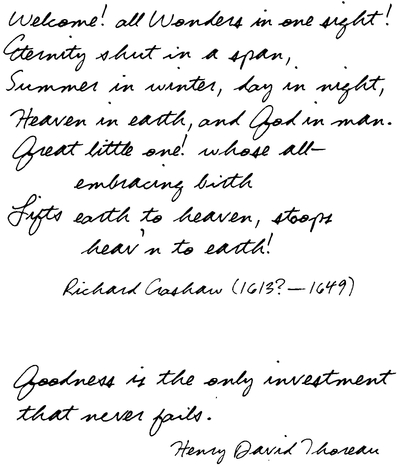 Welcome! all Wonders in one sight!
Eternity shut in a span,
Summer in winter, day in night,
Heaven in earth, and God in man.
Great little one! whose all-
embracing birth
Lifts earth to heaven, stoops
heav'n to earth!
Richard Crashaw (1613?—1649)
Goodness is the only investment
that never fails.
Henry David Thoreau